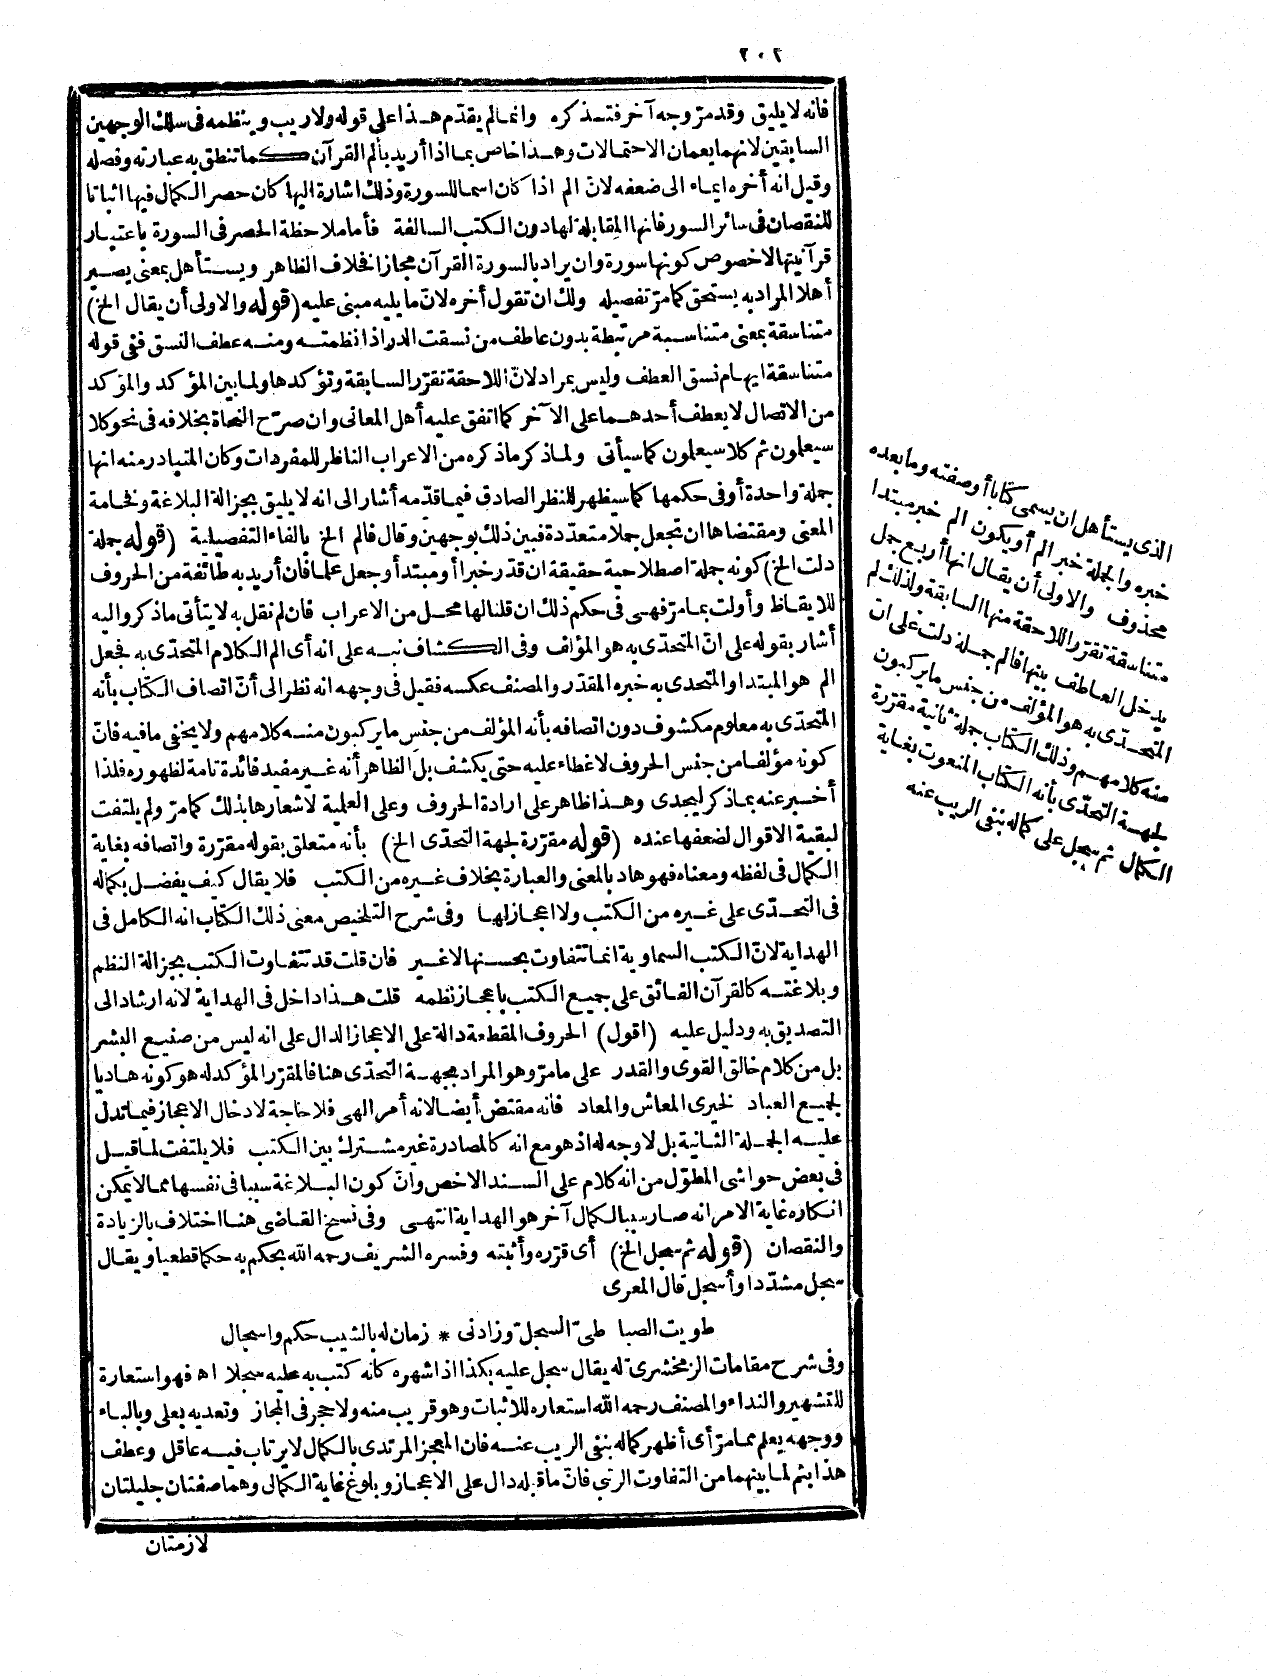 ٢٠٢
فانه لا يليق وقد مرّ وجه آخر فتـذكره وانما لم يقدّم هـذا على قوله ولا ريب وينظمه فى سلك الوجهين
السابقين لانهما يعمان الاحتمالات وهـذا خاص بما اذا أريد بألم القرآن كما تنطق به عبارته وفصله
وقيل انه أخره ايماء الى ضعفه لانّ الم اذا كان اسما للسورة وذلك اشارة اليها كان حصر الكمال فيها اثباتا
للنقصان فى سائر السور فانها المقابلة لها دون الكتب السالفة فأما ملاحظة الحصر فى السورة باعتبار
قرآنيتها لا خصوص كونها سورة وان يراد بالسورة القرآن مجازا فخلاف الظاهر ويستأهل بمعنى يصير
أهلا المراد به يستحق كما مرّ تفصيله ولك ان تقول أخره لانّ ما يليه مبنى عليه (قوله والاولى أن يقال الخ)
متناسقة بمعنى متناسبة مرتبطة بدون عاطف من نسقت الدر اذا نظمته ومنه عطف النسق ففى قوله
متناسقة ايهام نسق العطف وليس بمراد لانّ اللاحقة تقرّر السابقة وتؤكدها ولما بين المؤكد والمؤكد
من الاتصال لا يعطف أحدهما على الآخر كما اتفق عليه أهل المعانى وان صرّح النحاة بخلافه فى نحو كلا
سيعلمون ثم كلا سيعلمون كما سيأتى ولما ذكر ما ذكره من الاعراب الناظر للمفردات وكان المتبادر منه انها
جملة واحدة أو فى حكمها كما سيظهر للنظر الصادق فيما قدّمه أشار الى انه لا يليق بجزالة البلاغة وفخامة
المعنى ومقتضاها ان تجعل جملا متعدّدة فبين ذلك بوجهين وقال فالم الخ بالفاء التفصيلية (قوله جملة
دلت الخ) كونه جملة اصطلاحية حقيقة ان قدر خبرا أو مبتدأ وجعل علما فان أريد به طائفة من الحروف
للايقاظ وأولت بما مرّ فهى فى حكم ذلك ان قلنا لها محل من الاعراب فان لم نقل به لا يتأتى ما ذكر واليه
أشار بقوله على انّ المتحدّى به هو المؤلف وفى الكشاف نبه على انه أى الم الكلام المتحدّى به فجعل
الم هو المبتدا والمتحدى به خبره المقدّر والمصنف عكسه فقيل فى وجهه انه نظر الى أنّ اتصاف الكتاب بأنه
المتحدّى به معلوم مكشوف دون اتصافه بأنه المؤلف من جنس ما يركبون منه كلامهم ولا يخفى ما فيه فانّ
كونه مؤلفا من جنس الحروف لا غطاء عليه حتى يكشف بل الظاهر أنه غير مفيد فائدة تامة لظهوره فلذا
أخبر عنه بما ذكر ليجدى وهذا ظاهر على ارادة الحروف وعلى العلمية لاشعارها بذلك كما مرّ ولم يلتفت
لبقية الاقوال لضعفها عنده (قوله مقرّرة لجهة التحدّى الخ) بأنه متعلق بقوله مقرّرة واتصافه بغاية
الكمال فى لفظه ومعناه فهو هاد بالمعنى والعبارة بخلاف غيره من الكتب فلا يقال كيف يفضل بكماله
فى التحدّى على غيره من الكتب ولا اعجاز لها وفى شرح التلخيص معنى ذلك الكتاب انه الكامل فى
الهداية لانّ الكتب السماوية انما تتفاوت بحسنها لا غير فان قلت قد تتفاوت الكتب بجزالة النظم
وبلاغته كالقرآن الفائق على جميع الكتب باعجاز نظمه قلت هذا داخل فى الهداية لانه ارشاد الى
التصديق به ودليل عليه (اقول) الحروف المقطعة دالة على الاعجاز الدال على انه ليس من صنيع البشر
بل من كلام خالق القوى والقدر على ما مرّ وهو المراد بجهة التحدّى هنا فالمقرّر المؤكد له هو كونه هاديا
لجميع العباد لخيرى المعاش والمعاد فانه مقتض أيضا لانه أمر الهى فلا حاجة لادخال الاعجاز فيما تدل
عليه الجملة الثانية بل لا وجه له اذ هو مع انه كالمصادرة غير مشترك بين الكتب فلا يلتفت لما قيل
فى بعض حواشى المطوّل من انه كلام على السند الاخص وانّ كون البلاغة سببا فى نفسها مما لا يمكن
انكاره غاية الامر انه صار سببا لكمال آخر هو الهداية انتهى وفى نسخ القاضى هنا اختلاف بالزيادة
والنقصان (قوله ثم سجل الخ) أى قرّره وأثبته وفسره الشريف رحمه الله بحكم به حكما قطعيا ويقال
سجل مشدّدا وأسجل قال المعرى
طويت الصبا طىّ السجل وزادنى * زمان له بالشيب حكم واسجال
وفى شرح مقامات الزمخشرى له يقال سجل عليه بكذا اذا شهره كأنه كتب به عليه سجلا اه فهو استعارة
للتشهير والنداء والمصنف رحمه الله استعاره للاثبات وهو قريب منه ولا حجر فى المجاز وتعديه بعلى وبالباء
ووجهه يعلم مما مرّ أى أظهر كماله بنفى الريب عنه فان المعجز المرتدى بالكمال لا يرتاب فيه عاقل وعطف
هذا بثم لما بينهما من التفاوت الرتبى فانّ ما قبله دال على الاعجاز وبلوغ غاية الكمال وهما صفتان جليلتان
لازمتان
الذى يستأهل ان يسمى كتابا أو صفته وما بعده
خبره والجملة خبر الم أو يكون الم خبر مبتدا
محذوف والاولى أن يقال انها أربع جمل
متناسقة تقرّر اللاحقة منها السابقة ولذلك لم
يدخل العاطف بينها فالم جملة دلت على ان
المتحدّى به هو المؤلف من جنس ما يركبون
منه كلامهم وذلك الكتاب جملة ثانية مقرّرة
لجهة التحدّى بأنه الكتاب المنعوت بغاية
الكمال ثم سجل على كماله بنفى الريب عنه